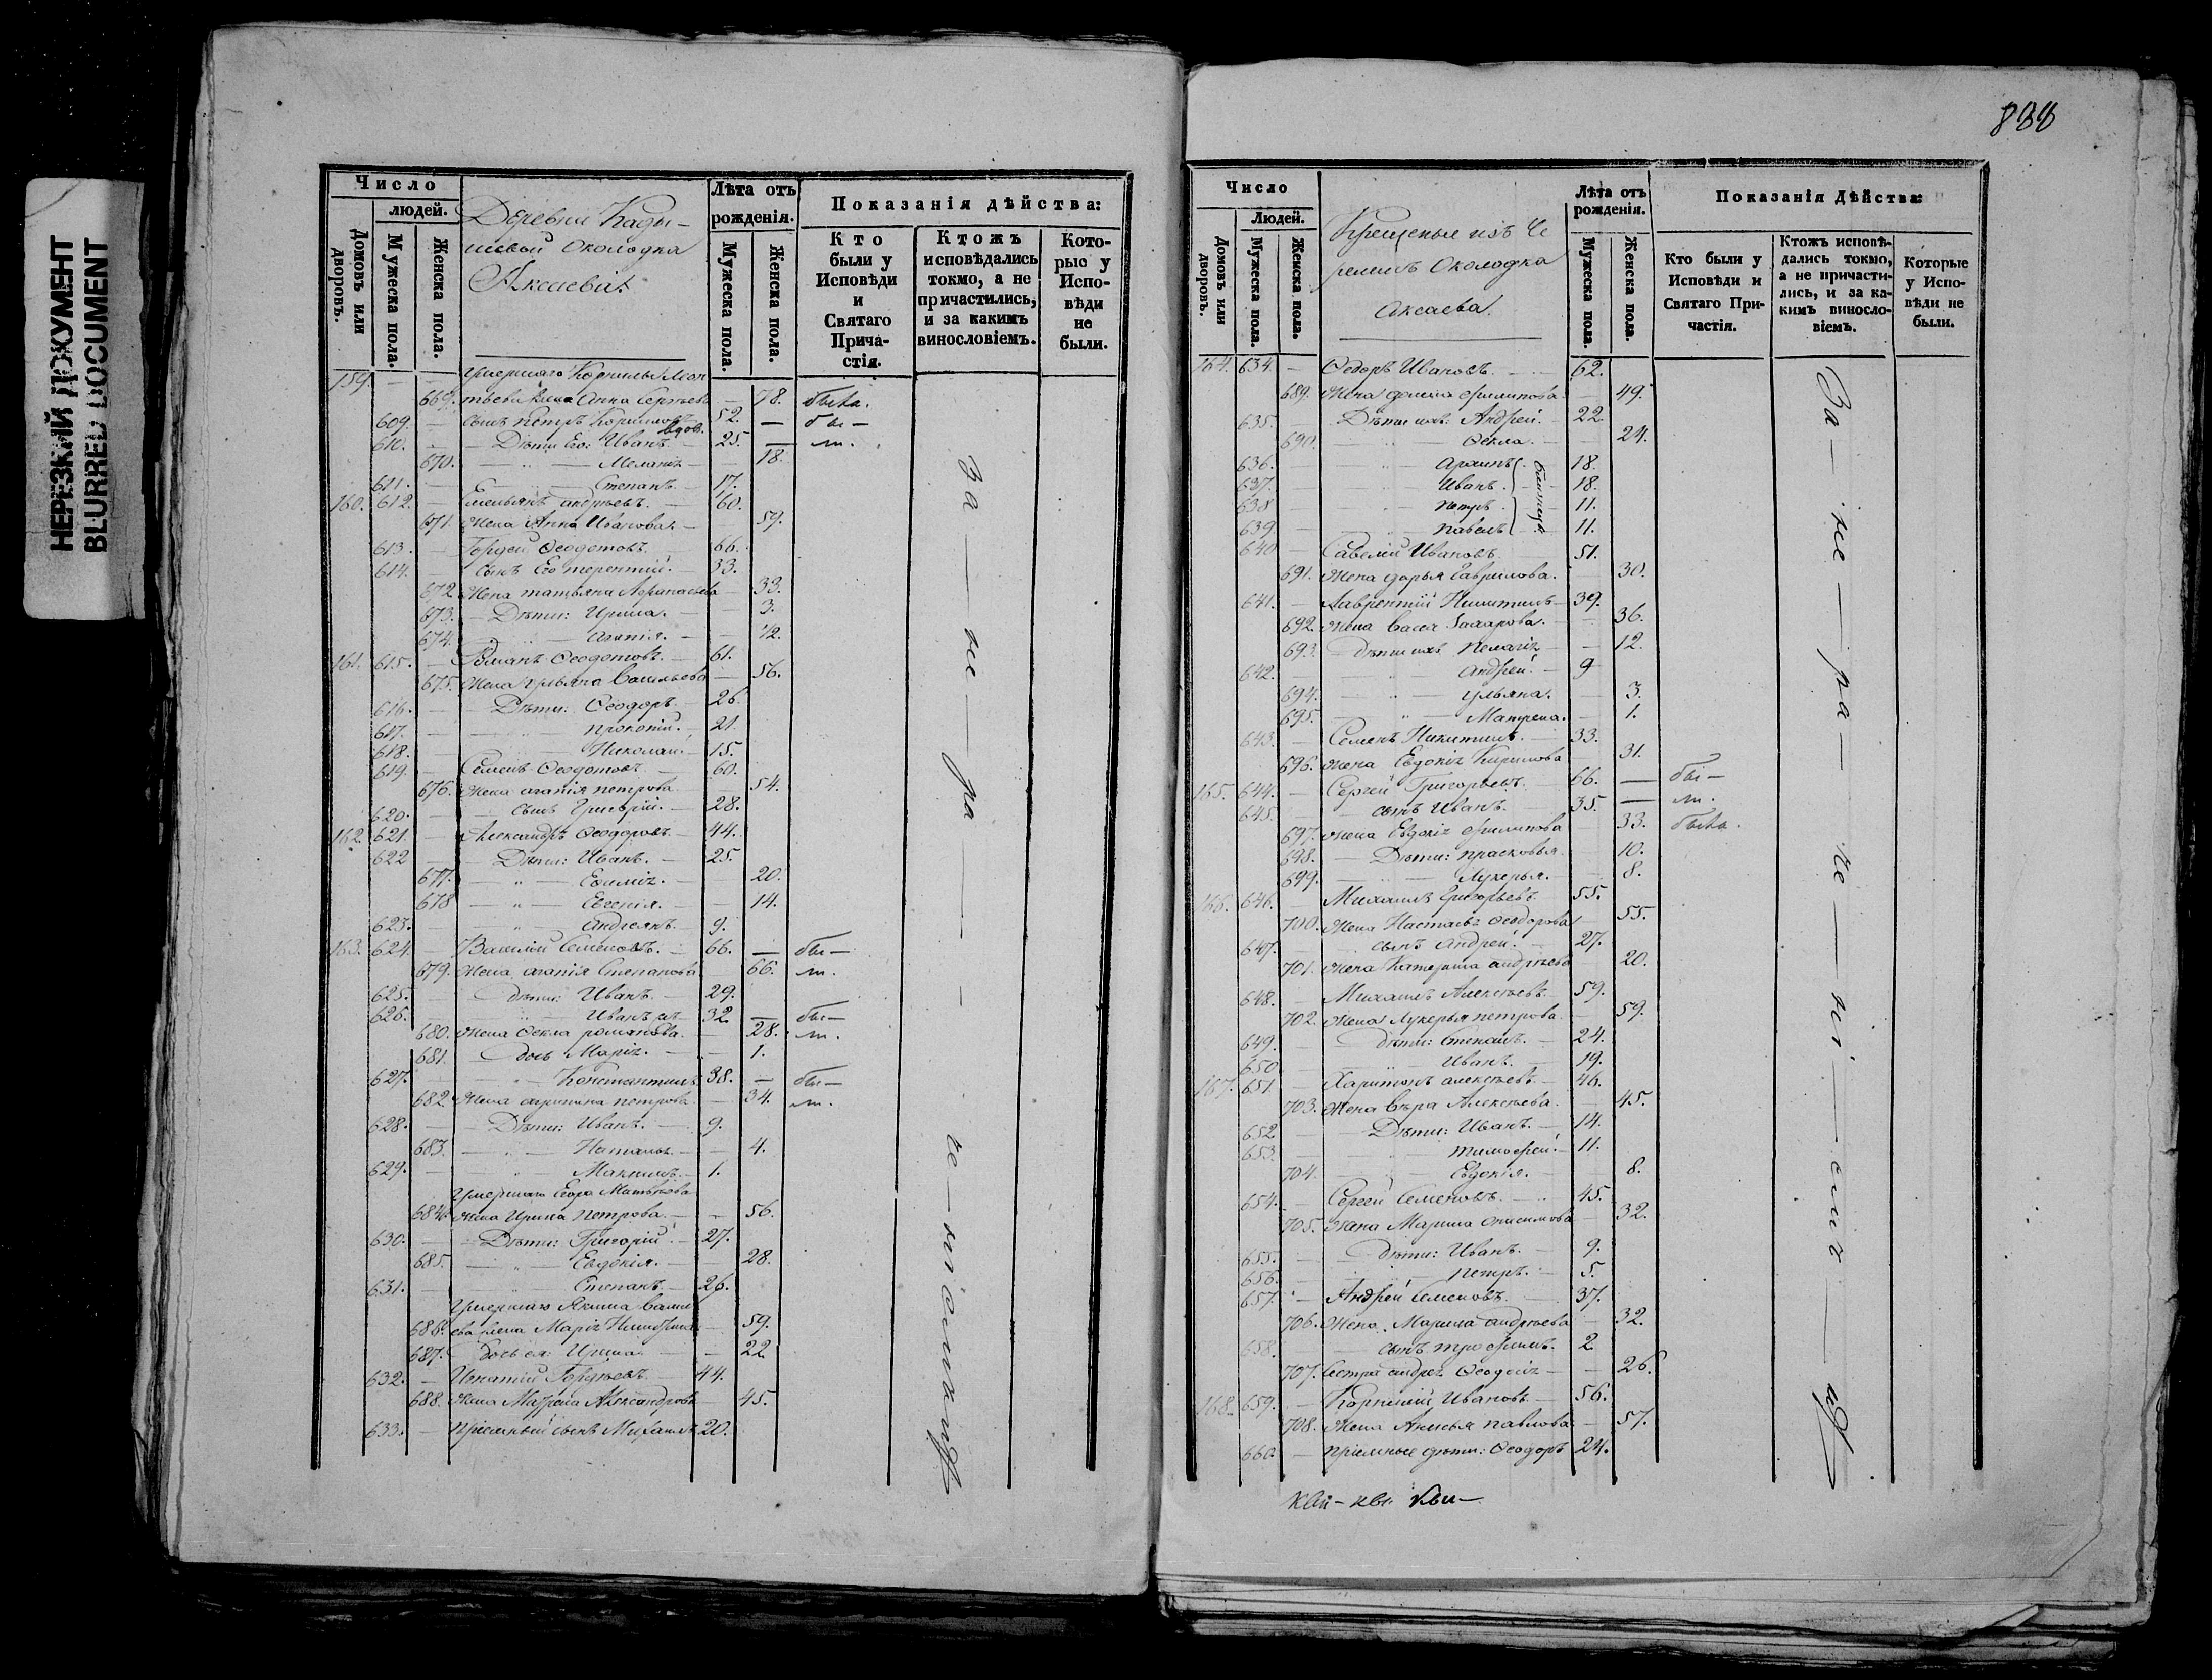 НЕРЕЗКИЙ ДОКУМЕНТ
BLURRED DOCUMENT
Число
людей.
Домовъ или дворовъ.
Мужеска пола.
Женска пола.
Деревни Кады-
шевой Околодка
Аксаева.
Лѣта отъ рожденія.
Мужеска пола.
Женска пола.
Показанія дѣйства:
Кто были у Исповѣди и Святаго Прича-стія.
Ктожъ исповѣдались токмо, а не причастились, и за какимъ винословіемъ.
Кото-рые у Испо-вѣди не были.
159. Умершаго Корнилы
669. жена Анна Сергѣева 78. была.
609. сынъ Петръ Корниловъ вдов. 52. — бы—
610. Дѣти Его: Иванъ. 25. — ли.
670. Меланія 18.
611. Степанъ 17.
160. 612. Емельянъ андреевъ. 60.
671. Жена Анна Иванова. 59.
613. Гордей Ѳеодотовъ. 66.
614. сынъ Его терентій. 33.
672. Жена татьяна 33.
673. Дѣти: Ирина. 3.
674. агапія. 1/2.
161. 615. Романъ Ѳеодотовъ. 61.
675. Жена ульяна Васильева 56.
616. Дѣти: Ѳеодоръ 26.
617. прокопій. 21.
618. Николай 15.
619. Семенъ Ѳеодотовъ 60.
676. Жена агапія петрова 54.
620. сынъ Григорій. 28.
162. 621. Александръ Ѳеодоровъ 44.
622 Дѣти: Иванъ. 25.
677. Евимія. 20.
678 Евгенія. 14.
623. андреянъ 9.
163. 624. Василій Семеновъ. 66. — бы—
679. Жена, агапія Степанова 66. ли.
625. дѣти: Иванъ. 29.
626. Иванъ же 32 — бы—
680. Жена Ѳекла романова. 28. ли.
681. дочь Марія. 1.
627. Константинъ 38. — бы—
682. Жена акулина петрова. 34. ли.
628. Дѣти: Иванъ. 9.
683. Наталья 4.
629. Максимъ. 1.
Умершаго Егора
684. жена Ирина Петрова. 56.
630. Дѣти: Григорій 27.
685. Евдокія. 28.
631. Степанъ 26.
Умершаго Якима васил
686. ева жена Марія 59.
687. дочь ея Ирина 22
632. Игнатій Гордѣевъ 44.
688. Жена Матрена Александрова 45.
633. пріемный сынъ Михаилъ 20.
За — не — ра — че — ніемъ
888
Число
Людей.
Домовъ или дворовъ.
Мужеска пола.
Женска пола.
Крещеныя изъ Че
ремисъ Околодка
аксаева.
Лѣта отъ рожденія.
Мужеска пола.
Женска пола.
Показанія Дѣйства:
Кто были у Исповѣди и Святаго При-частія.
Ктожъ исповѣ-дались токмо, а не причасти-лись, и за ка-кимъ виносло-віемъ.
Которые у Испо-вѣди не были.
164. 634. Ѳедоръ Ивановъ. 62.
689. Жена филипова 49.
635. Дѣти ихъ: Андрей. 22.
690. Ѳекла. 24.
636. архипъ близнецы 18.
637. Иванъ. 18.
638 петръ 11.
639 павелъ 11.
640 Савелій Ивановъ 51.
691. Жена дарья Гаврилова. 30.
641. Лаврентій Никитинъ 39.
692. Жена васса Захарова. 36.
693. Дѣти ихъ Пелагія 12.
642. андрей. 9
694. ульяна. 3.
695. Матрена. 1.
643. Семенъ Никитинъ. 33.
696. Жена Евдокія Кирилова 31.
165. 644. Сергей Григорьевъ. 66. — бы—
645. сынъ Иванъ. 35. — ли.
697. Жена Евдокія филипова 33. была.
698. Дѣти: прасковья. 10.
699. Лукерья. 8.
166. 646. Михаилъ Григорьевъ. 55.
700. Жена Настасья Ѳеодорова 55.
647. сынъ андрей. 27.
701. Жена Катерина андрѣева 20.
648. Михаилъ Алексѣевъ. 59.
702. Жена Лукерья петрова. 59.
649. дѣти: Степанъ. 24.
650. Иванъ. 19.
167. 651 Харитонъ алексѣевъ. 46.
703. Жена вѣра Алексѣева. 45.
652. Дѣти: Иванъ. 14.
653. тимофей. 11.
704. Евдокія. 8.
654. Сергей Семеновъ. 45.
705. Жена Марина анисимова 32.
655. дѣти: Иванъ. 9.
656. петръ. 5.
657. Андрей Семеновъ. 37.
706. Жена Марина андрѣева 32.
658. сынъ трофимъ. 2
707. Сестра андрея Ѳеодосія 26.
168. 659. Корнилій Ивановъ. 56.
708. Жена Анисья павлова 57.
660. пріемные дѣти: Ѳеодоръ 24.
За — не — ра — че — ні — емъ